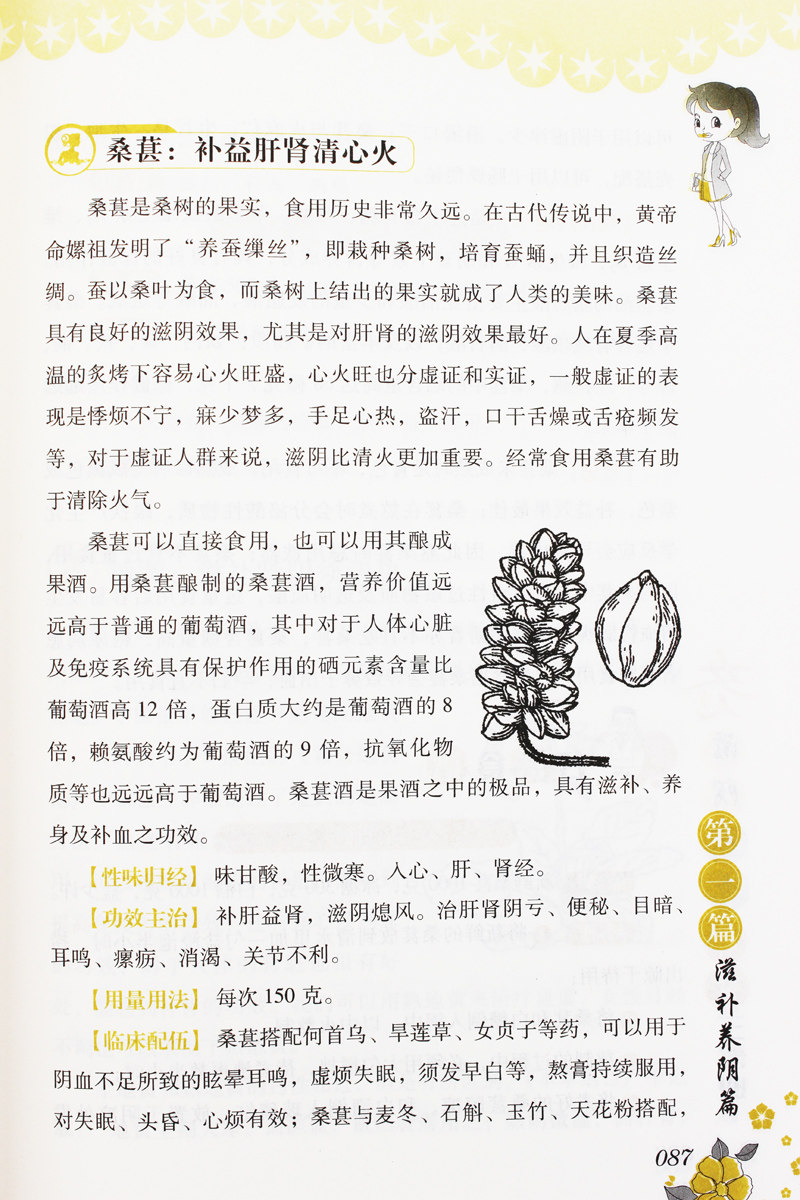 桑葚：补益肝肾清心火
桑葚是桑树的果实，食用历史非常久远。在古代传说中，黄帝
命嫘祖发明了“养蚕缫丝”，即栽种桑树，培育蚕蛹，并且织造丝
绸。蚕以桑叶为食，而桑树上结出的果实就成了人类的美味。桑葚
具有良好的滋阴效果，尤其是对肝肾的滋阴效果最好。人在夏季高
温的炙烤下容易心火旺盛，心火旺也分虚证和实证，一般虚证的表
现是悸烦不宁，寐少梦多，手足心热，盗汗，口干舌燥或舌疮频发
等，对于虚证人群来说，滋阴比清火更加重要。经常食用桑葚有助
于清除火气。
桑葚可以直接食用，也可以用其酿成
果酒。用桑葚酿制的桑葚酒，营养价值远
远高于普通的葡萄酒，其中对于人体心脏
及免疫系统具有保护作用的硒元素含量比
葡萄酒高 12 倍，蛋白质大约是葡萄酒的 8
倍，赖氨酸约为葡萄酒的 9 倍，抗氧化物
质等也远远高于葡萄酒。桑葚酒是果酒之中的极品，具有滋补、养
身及补血之功效。
【性味归经】 味甘酸，性微寒。入心、肝、肾经。
【功效主治】 补肝益肾，滋阴熄风。治肝肾阴亏、便秘、目暗、
耳鸣、瘰疬、消渴、关节不利。
【用量用法】 每次 150 克。
【临床配伍】 桑葚搭配何首乌、旱莲草、女贞子等药，可以用于
阴血不足所致的眩晕耳鸣，虚烦失眠，须发早白等，熬膏持续服用，
对失眠、头昏、心烦有效；桑葚与麦冬、石斛、玉竹、天花粉搭配，
第一篇
滋补养阴篇
087